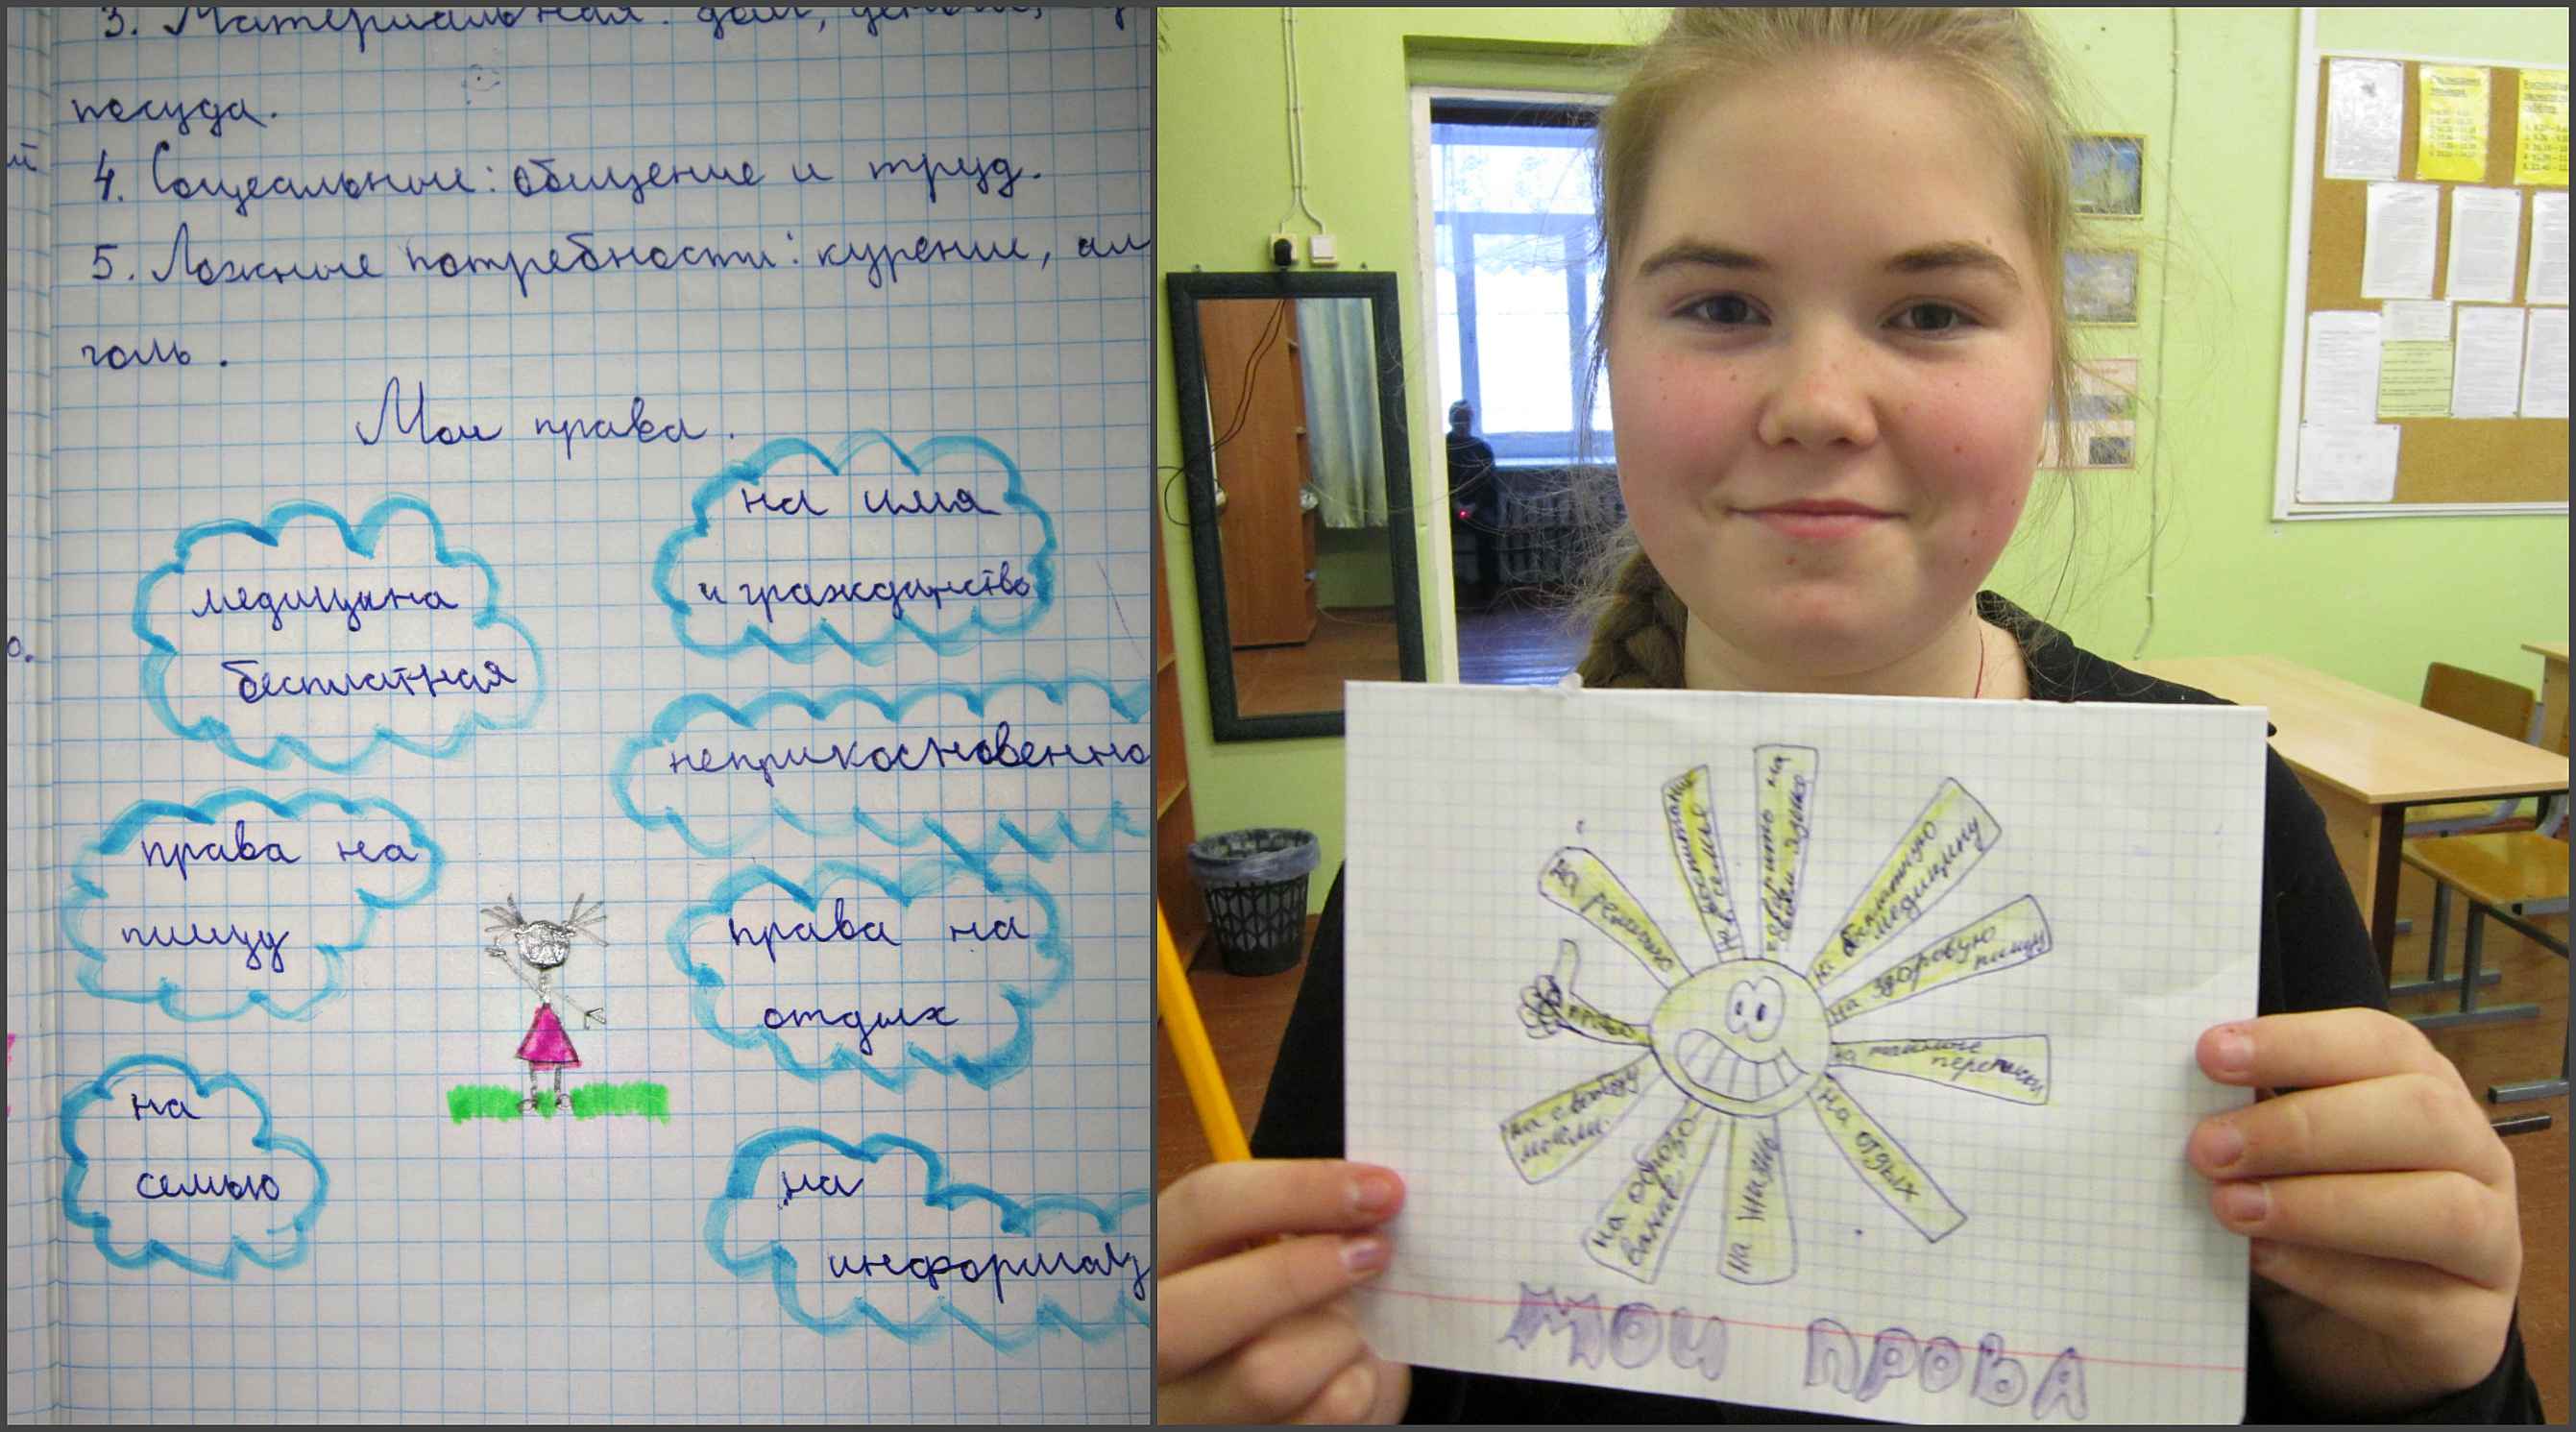 3. Материальная: дом, деньги,
посуда.
4. Социальные: общение и труд.
5. Ложные потребности: курение, ал
голь.
Мои права.
на имя
и гражданство
медицина
бесплатная
неприкосновенно
права на
пищу
права на
отдых
на
семью
на
информац
на религию
на воспитание
в семье
говорить на
своём языке
на бесплатную
медицину
на здоровую
пищу
на тайные
переписки
на отдых
на жизнь
на образо
вание
на свободу
мысли.
право
МОИ ПРОВА